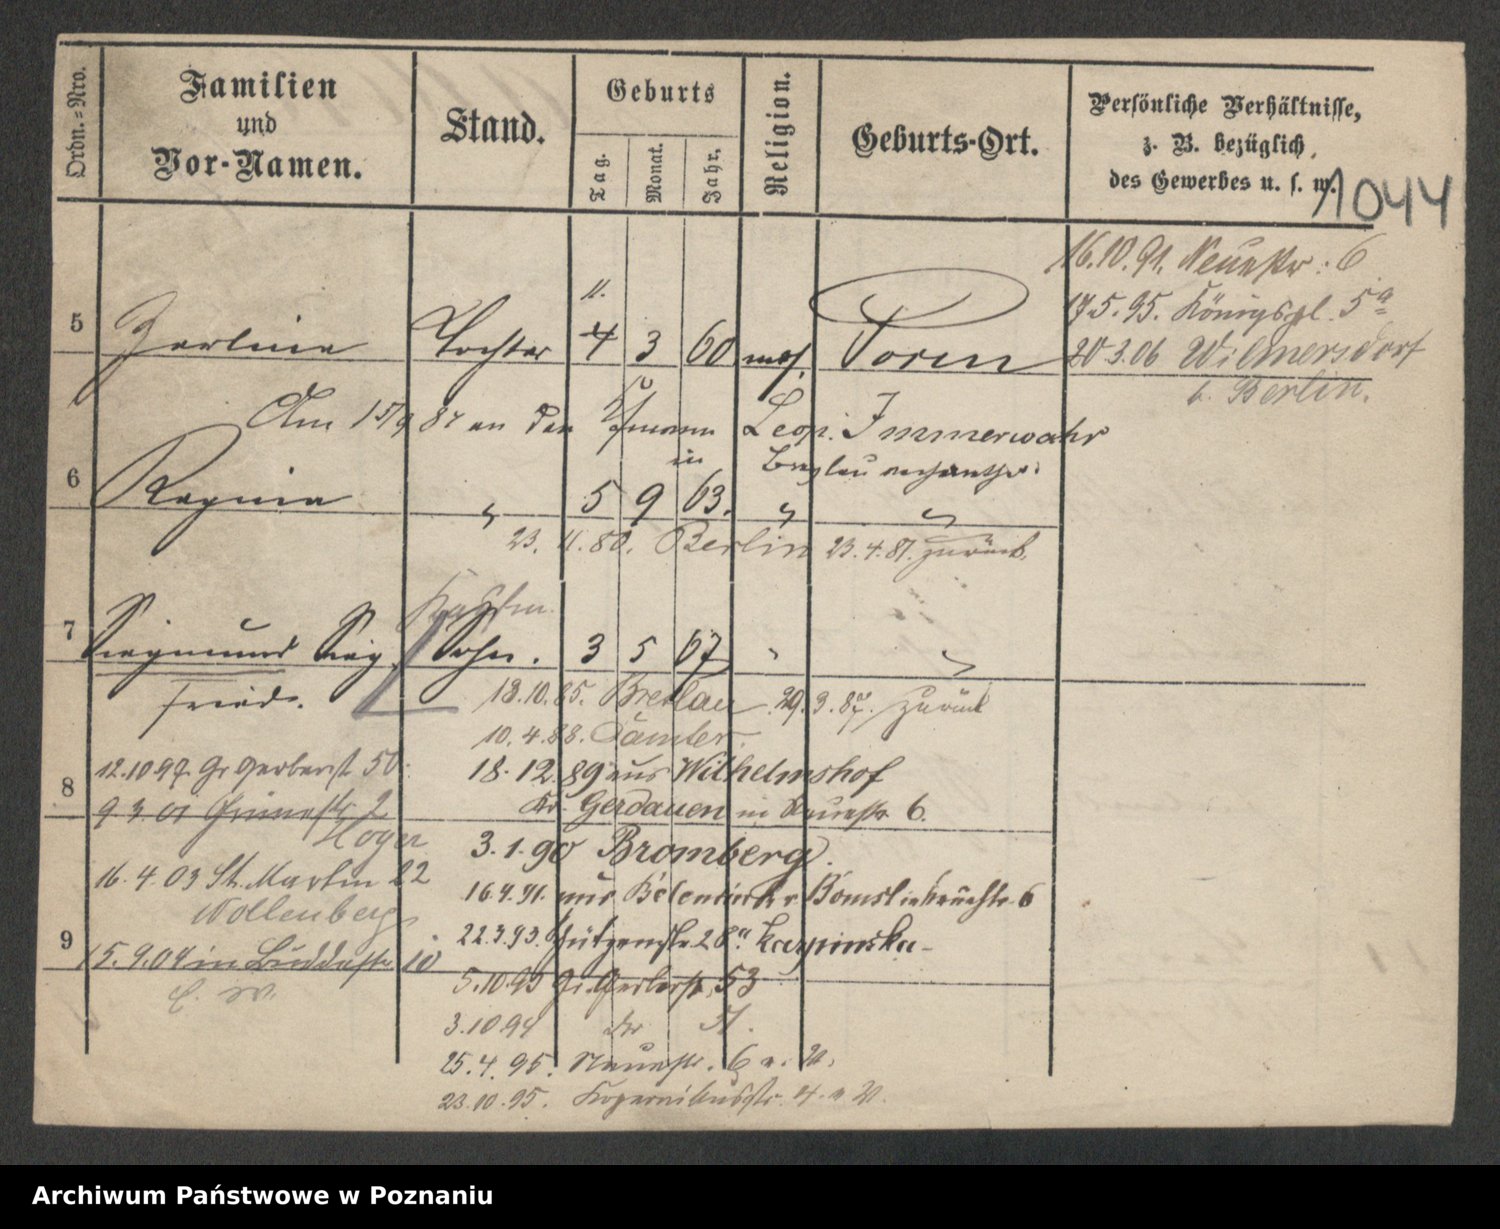 Ordn.=Nro.
Familien
und
Vor-Namen.
Stand.
Geburts
Tag.
Monat.
Jahr.
Religion.
Geburts-Ort.
Persönliche Verhältnisse,
z. B. bezüglich
des Gewerbes u. s. w.
1044
16.10.91. Neuestr. 6
17.5.95. Königspl. 5a
20 3.06 Wilmersdorf
b. Berlin.
11.
5 Zerline Tochter 4 3 60 mos. Posen
Am 15/9 81 an den Kfmann Leop. Immerwahr
in Breslau
6 Regina " 5 9 63. " "
23. 11. 80. Berlin 23.4.81. zurück.
Kaufm.
7 Siegmund Sieg Sohn. 3 5 67 " "
fried.
18.10.85. Breslau 29.3.87. zurück
10.4.88. Samter.
12.10 97. Gr Gerberst 50.
18.12.89 aus Wilhelmshof
8
Kr. Gerdauen in Neuestr 6.
9 3 01 2
Hoyer
3.1.90 Bromberg.
16.4.03 St. Martin 22
16.4.91. aus 6
Wollenberg
9
22.3.93. Schützenstr. 28a.
15.9.04 in 10
5.10.93 Gr. Gerberstr. 53
3.10 94 do 51.
25.4.95. Neuestr. 6
23.10.95. Kopernikusstr. 4.